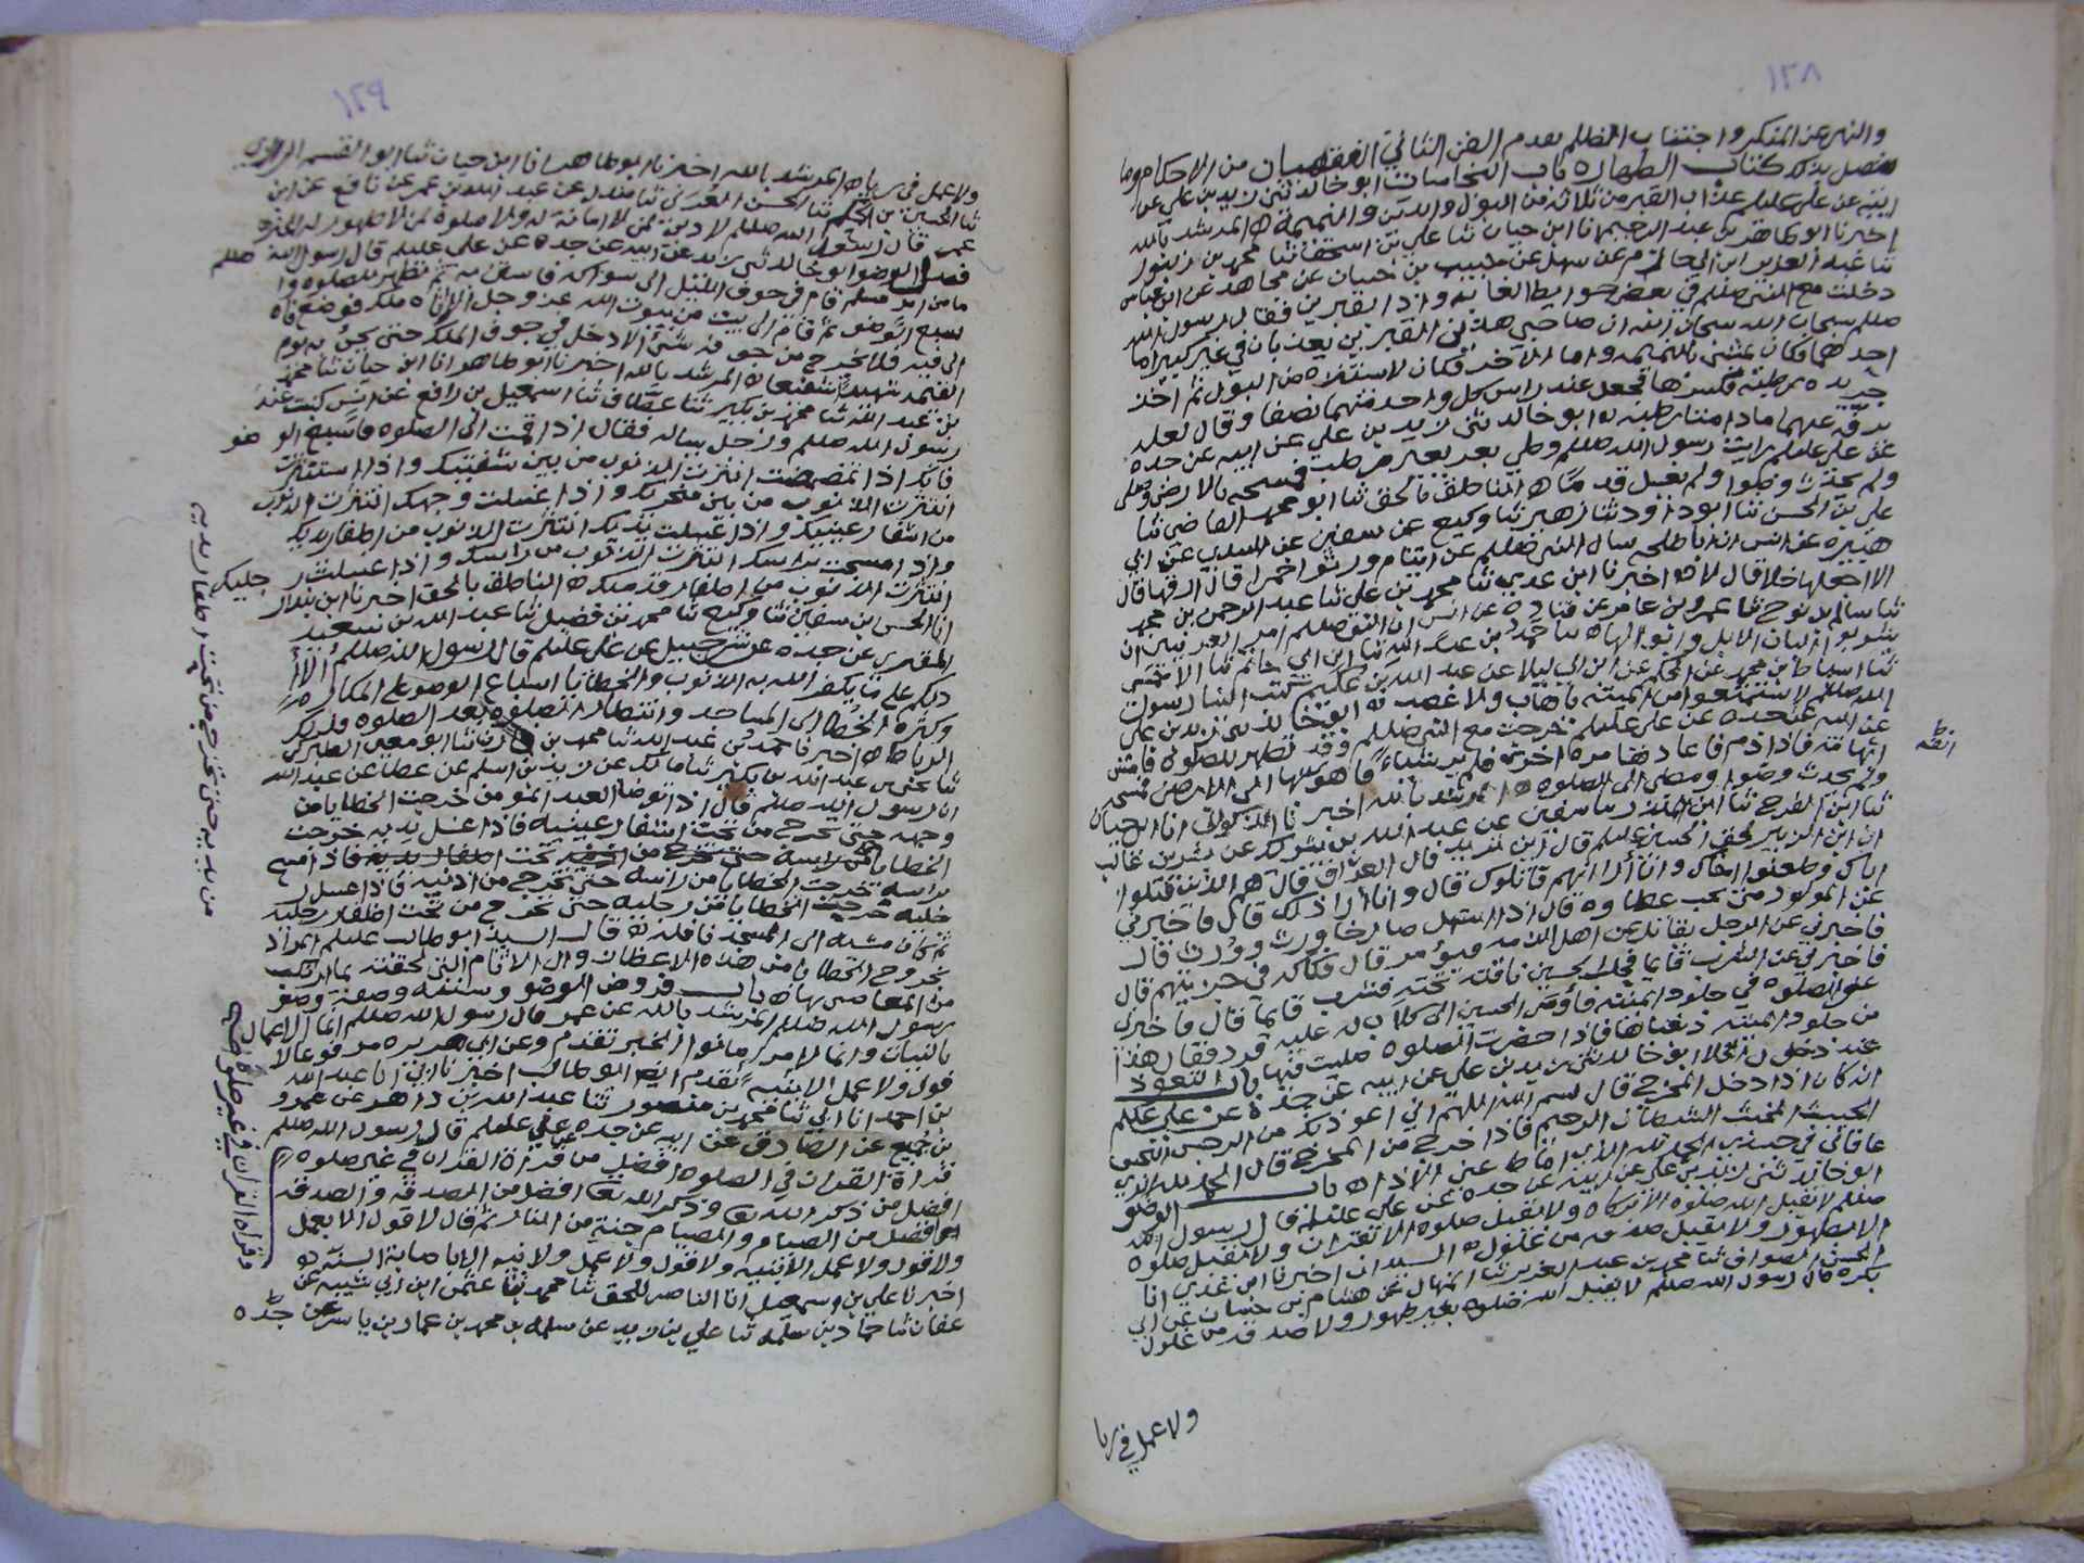 ١٢٨
والنهي عن المنكر واجتناب الظلم بعدم الفن الثاني الفقهيات من الاحكام وما
كتاب الطهارة باب النجاسات ابو خالد ثنى زيد بن علي عن
ابيه عن علي عليلم عذاب القبر من ثلاثة من البول والدين والنميمة المرشد بالله
اخبرنا ابو طاهر بن عبد الرحيم انا ابن حيان ثنا علي بن اسحق ثنا محمد بن
ثنا عبد العزيز ابن ابي حازم عن سهل عن حبيب بن حبان عن مجاهد عن ابن عباس
دخلت مع النبي صللم في بعض حوايط الغابة واذا بقبرين فقال رسول الله
صللم سبحان الله سبحان الله ان صاحبي هذين القبرين يعذبان في غير كبير اما
احدهما فكان يمشي بالنميمه واما الآخر فكان لا يستنزه من البول ثم اخذ
جريده رطبة فكسرها فجعل عند راس كل واحد منهما نصفا وقال لعله
يرفه عنهما ما دامتا رطبة ابو خالد ثنى زيد بن علي عن ابيه عن جده
عن علي عليلم رايت رسول الله صللم وطي بعر بعير رطب فمسحه بالارض وصلى
ولم يحدث وضوا ولم يغسل قدما الناطق بالحق ثنا ابو محمد القاضي ثنا
علي بن الحسن ثنا ابو داود ثنا زهير ثنا وكيع عن سفين عن السدي عن ابي
هبيرة عن انس ان ابا طلحه سال النبي صللم عن ايتام ورثوا خمرا قال ارقها قال
الا اجعلها خلا قال لا اخبرنا ابن عدي ثنا محمد بن علي ثنا عبد الرحمن بن محمد
ثنا سالم بن نوح ثنا عمرو بن عامر عن قتادة عن انس ان النبي صللم امر العرنيين ان
يشربوا البان الابل وابوالها محمد بن عبد الله ثنا ابن ابي حاتم ثنا الاحمسي
ثنا اسباط بن محمد عن الحكم عن ابن ابي ليلا عن عبد الله بن عكيم كتب الينا رسول
الله صللم لا تستمتعوا من الميتة باهاب ولا عصب ابو خالد ثنى زيد بن علي
عن ابيه عن جده عن علي عليلم خرجت مع النبي صللم وقد تطهر للصلوة فامس
ابهامه فاذا دم فاعادها مرة اخرى فلم ير شيئا فاهوى بها الى الارض فمسحه
ولم يحدث وضوا ومضى الى الصلوة المرشد بالله اخبرنا انا ابن حيان
ثنا ابن الفرج ثنا ابن المنذر ثنا سفين عن عبد الله بن شريك عن بشر بن غالب
ان ابن الزبير لحق الحسين عليلم قال اين تريد قال العراق قال هم الذين قتلوا
اباك وطعنوا اخاك وانا أرا انهم قاتلوك قال وانا أرا ذلك قال فاخبرني
عن المولود متى يجب عطاوه قال اذا استهل صارخا ورث وورث قال
فاخبرني عن الرجل يقاتل عن اهل الذمه فيؤسر قال فكاكه في جزيتهم قال
فاخبرني عن الشرب قائما فحلب الحسين ناقته تحته فشرب قائما قال فاخبرني
عن الصلوة في جلود الميتة فأومى الحسين الى كلاب له عليه قرد فقال هذا
من جلود الميتة دبغناها فاذا حضرت الصلوة صليت فيها باب التعوذ
عند دخول الخلا ابو خالد ثنى زيد بن علي عن ابيه عن جده عن علي عليلم
انه كان اذا دخل المخرج قال بسم الله اللهم اني اعوذ بك من الرجس النجس
الخبيث المخبث الشيطان الرجيم فاذا خرج من المخرج قال الحمد لله الذي
عافاني في جسدي الحمد لله الذي اماط عني الاذى باب الوضو
ابو خالد ثنى زيد بن علي عن ابيه عن جده عن علي عليلم قال رسول الله
صللم لا تقبل الله صلوة الا بزكاه ولا تقبل صلوة الا بقران ولا تقبل صلوة
الا بطهور ولا تقبل صدقه من غلول السيدان اخبرنا ابن عدي انا
الحسن الصواف ثنا محمد بن عبد العزيز ثنا المنهال عن هشام بن حسان عن ابي
بكره قال رسول الله صللم لا يقبل الله صلوة بغير طهور ولا صدقه من غلول
ولا عمل في ريا
١٢٩
ولا عمل في رياء المرشد بالله اخبرنا ابو طاهر انا ابن حيان ثنا ابو القسم الرازي
ثنا الحسين بن الحكم ثنا الحسن العُرَني ثنا مندل عن عبد الله بن عمر عن نافع عن ابن
عمر قال رسول الله صللم لا دين لمن لا امانة له ولا صلوة لمن لا طهور له
فضل الوضو ابو خالد ثنى زيد عن ابيه عن جده عن علي عليلم قال رسول الله صللم
ما من امر مسلم قام في جوف الليل الى سواكه فاستن به ثم تطهر للصلوة وا
سبغ الوضو ثم قام الى بيت من بيوت الله عز وجل الا اتاه ملك فوضع فاه
الى فيه فلا يخرج من جوفه شئ الا دخل في جوف الملك حتى يجئ به يوم
القيمه شهيدا شفيعا المرشد بالله اخبرنا ابو طاهر انا ابن حيان ثنا محمد
بن عبد الله ثنا محمد بن بكير ثنا عطاف ثنا اسمعيل بن رافع عن انس كنت عند
رسول الله صللم ورجل يساله فقال اذا قمت الى الصلوة فاسبغ الوضو
فانك اذا تمضمضت انتثرت الذنوب من بين شفتيك واذا استنثرت
انتثرت الذنوب من بين منخريك واذا غسلت وجهك انتثرت الذنوب
من اشفار عينيك واذا غسلت يديك انتثرت الذنوب من اظفار يديك
واذا مسحت براسك انتثرت الذنوب من راسك واذا غسلت رجليك
انتثرت الذنوب من اظفار قدميك الناطق بالحق اخبرنا ابن بندار
انا الحسن ابن سفين ثنا وكيع ثنا محمد بن فضيل ثنا عبد الله بن سعيد
المقبري عن جده عن شرحبيل عن علي عليلم قال رسول الله صللم الا أ
دلكم على ما يكفر الله به الذنوب والخطايا اسباغ الوضو على المكاره
وكثرة الخطا الى المساجد وانتظار الصلوة بعد الصلوة فذلك
الرباط اخبرنا محمد بن عبد الله ثنا محمد بن ثنا ابو معين الطبركي
ثنا يحيى بن عبد الله بن بكير ثنا مالك عن زيد بن اسلم عن عطا عن عبد الله
ان رسول الله صللم قال اذا توضا العبد المؤمن خرجت الخطايا من
وجهه حتى تخرج من تحت اشفار عينيه فاذا غسل يديه خرجت
الخطايا من تحت اظفار يديه فاذا مسح
براسه خرجت الخطايا من راسه حتى تخرج من اذنيه فاذا غسل ر
جليه خرجت الخطايا من رجليه حتى تخرج من تحت اظفار رجليه
ثم كان مشيه الى المسجد نافلة له قال السيد ابو طالب عليلم المراد
بخروج الخطايا من هذه الاعظاء زوال الاثام التي لحقته بما ارتكب
من المعاصي بها باب فروض الوضو وسننه وصفة وضو
رسول الله صللم المرشد بالله عن عمر قال رسول الله صللم انما الاعمال
بالنيات وانما لامر ما نوا الخبر تقدم وعن ابي هريره مرفوعا لا
قول ولا عمل الا بنيه تقدم ايضا ابو طالب اخبرنا ابي انا عبد الله
بن احمد انا ابي ثنا محمد بن منصور ثنا عبد الله بن داهر عن عمرو
بن جميع عن الصادق عن ابيه عن جده عن علي عليلم قال رسول الله صللم
قراة القران في الصلوة افضل من قراة القران في غير صلوة
افضل من ذكر الله تع وذكر الله تع افضل من الصدقة والصدقه
افضل من الصيام والصيام جنة من النار ثم قال لا قول الا بعمل
ولا قول ولا عمل الا بنيه ولا قول ولا عمل ولا نيه الا باصابة السنة
اخبرنا علي بن اسمعيل انا الناصر للحق ثنا محمد ثنا عثمن ابن ابي شيبه عن
عفان ثنا حماد بن سلمه ثنا علي بن زيد عن سلمه بن محمد بن عمار بن ياسر عن جده
من يديه حتى تخرج من تحت اظفار يديه
وقراة القران في غير صلوة